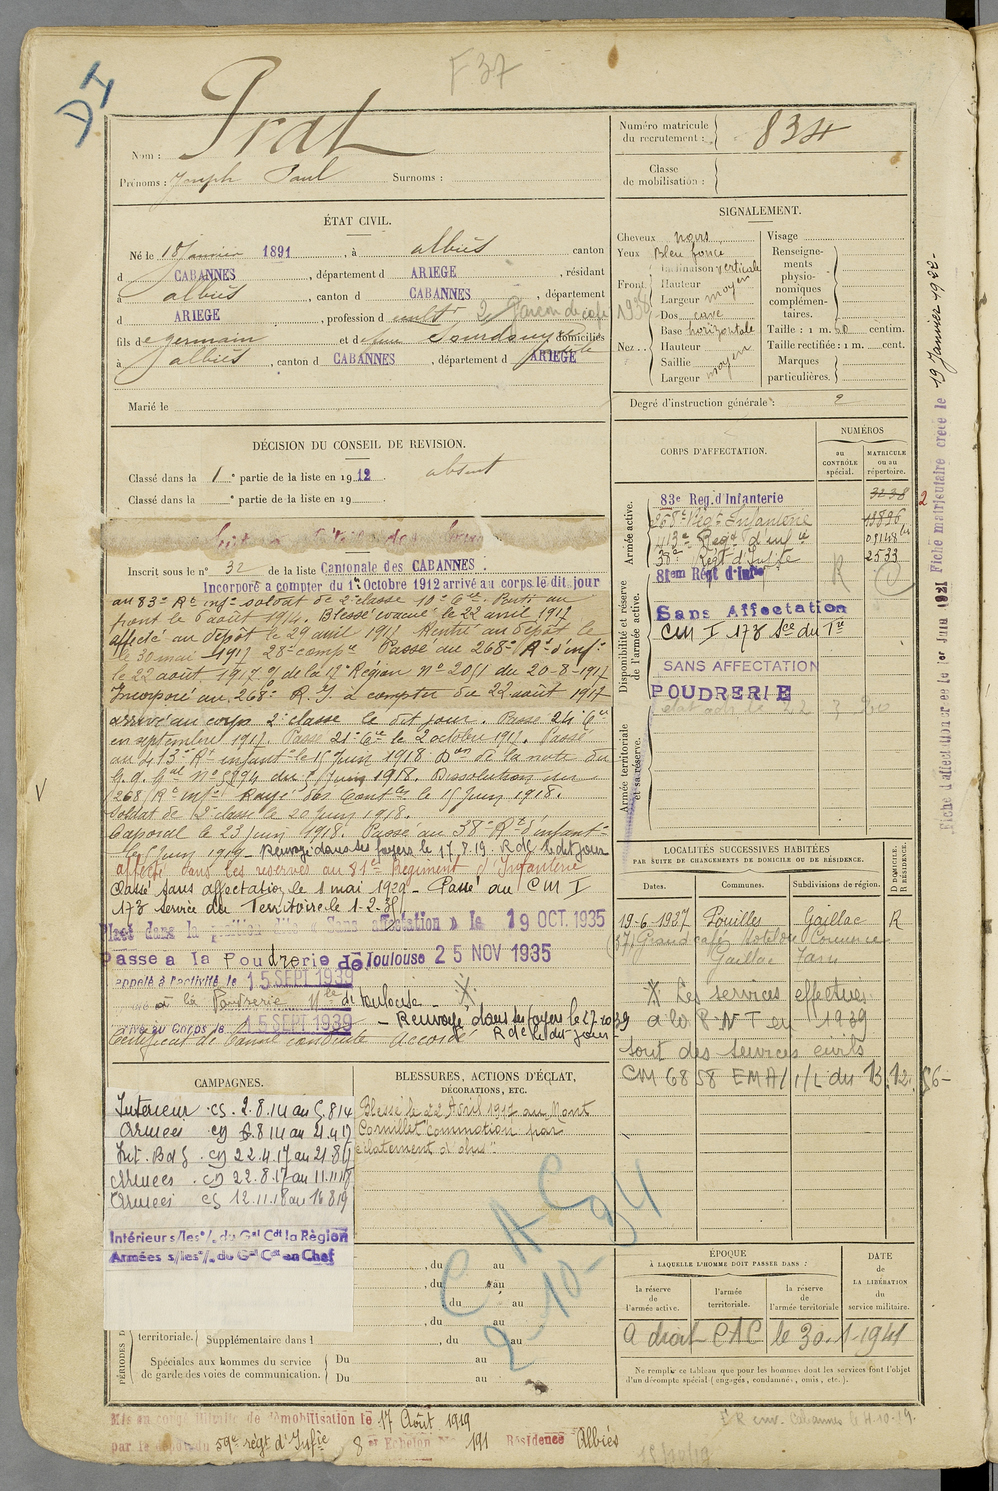 DI
F 37
Nom : Prat
Prénoms : Joseph Paul Surnoms :
Numéro matricule du recrutement : 834
Classe de mobilisation :
ÉTAT CIVIL.
Né le 18 janvier 1891, à albiès canton
d CABANNES, département d ARIEGE, résidant
à albiès, canton d CABANNES, département
d ARIEGE, profession d cultr 2 Garçon de café
fils de germain et de domiciliés
à albiès, canton d CABANNES, département d ARIEGE
Marié le
SIGNALEMENT.
Cheveux noirs
Yeux Bleu foncé
Front Inclinaison verticale
Hauteur
Largeur moyen
Nez Dos cave
Base horizontale
Hauteur
Saillie
Largeur moyen
Visage
Renseignements physionomiques complémentaires.
Taille : 1 m. 50 centim.
Taille rectifiée : 1 m. cent.
Marques particulières.
Degré d'instruction générale : 2
DÉCISION DU CONSEIL DE REVISION.
Classé dans la 1e partie de la liste en 1912 absent
Classé dans la e partie de la liste en 19
Inscrit sous le n° 32 de la liste Cantonale des CABANNES.
Incorporé a compter du 1er Octobre 1912 arrivé au corps le dit jour
au 83e Rt infie soldat de 2e classe 10e Cie. Parti au
front le 6 août 1914. Blessé évacué le 22 avril 1917
affecté au dépôt le 29 avril 1917 Rentré au dépôt le
le 30 mai 1917 28e compie Passé au 268e Rt d'inf.
le 22 août 1917 de la 17e Région No 2051 du 20-8-1917
Incorporé au 268e R. I. à compter du 22 août 1917
arrivé au corps 2e classe le dit jour. Passé 24e Cie
en septembre 1917. Passé 21e Cie le 2 octobre 1917. Passé
au 413e Rt infant. le 15 juin 1918. Don de la note du
G. Q. Gal No 5894 du juin 1918. Dissolution du
268e Rt infie Rayé des Contles le 15 juin 1918.
Soldat de 2e classe le 20 juin 1918.
Caporal le 23 juin 1918. Passé au 38e Rt d'infant.
le juin 1919 Renvoyé dans ses foyers le 17.8.19. R de c le dit jour
affecté dans les réserves au 81e Régiment d'Infanterie
Classé Sans affectation le 1 mai 1929 - Passé au CM I
173 service du Territoire le 1-2-35
Placé dans la position dite « Sans affectation » le 19 OCT. 1935
Passé à la Poudrerie de Toulouse 25 NOV 1935
appelé à l'activité le 15 SEPT 1939
à la Poudrerie Nle de Toulouse - X
arrivé au Corps le 15 SEPT 1939 - Renvoyé dans ses foyers le 27 10 39
Certificat de bonne conduite accordé R de c le dit jour
CORPS D'AFFECTATION.
NUMÉROS
au CONTRÔLE spécial.
MATRICULE ou au répertoire.
Armée active.
83e Reg. d'Infanterie 3238
268e Regt Infanterie 13896
413e Regt d'infie
38e Regt d'Infie 2533
81em Régt d'Infie R
Disponibilité et réserve de l'armée active.
Sans Affectation
CM I 173 Sce du Tre
SANS AFFECTATION
POUDRERIE
Armée territoriale et sa réserve.
LOCALITÉS SUCCESSIVES HABITÉES
PAR SUITE DE CHANGEMENTS DE DOMICILE OU DE RÉSIDENCE.
Dates. Communes. Subdivisions de région. D DOMICILE. R RÉSIDENCE.
19-6-1927 Pouilles Gaillac R
Grand café Hotel du Commerce
Gaillac Tarn
X Les services effectués
à la P N T en 1939
sont des services civils
CM 6858 EMA/1/L du 13.12.56
CAMPAGNES.
Intérieur cs. 2.8.14 au 5.8.14
Armées cd 6.8.14 au 21.4.17
Int. B de G. cd 22.4.17 au 21.8.17
Armées cd 22.8.17 au 11.11.18
Armées cs 12.11.18 au 16.8.19
Intérieur s/les °/. du Gal Cdt la Région
Armées s/les °/. du Gal Cdt en Chef
BLESSURES, ACTIONS D'ÉCLAT,
DÉCORATIONS, ETC.
Blessé le 22 Avril 1917 au Mont
Cornillet "commotion par
éclatement d'obus".
CAC
2-10-94
, du au
, du au
du au
, du au
territoriale. Supplémentaire dans l , du au
Spéciales aux hommes du service de garde des voies de communication. Du au
Du au
ÉPOQUE
À LAQUELLE L'HOMME DOIT PASSER DANS :
la réserve de l'armée active.
l'armée territoriale.
la réserve de l'armée territoriale
DATE de LA LIBÉRATION du service militaire.
A droit CAC le 30.1.1941
Ne remplir ce tableau que pour les hommes dont les services font l'objet d'un décompte spécial (engagés, condamnés, omis, etc.).
Mis en congé illimité de démobilisation le 17 Août 1919
par le dépôt du 59e régt d'Infie 8 er Echelon No 191 Résidence Albiès
Fiche d'affectation créée le 1er Juin 1921 Fiche matriculaire créée le 19 Janvier 1922